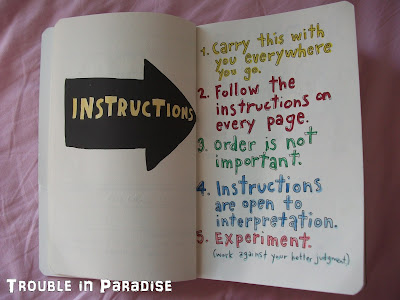 INSTRUCTIONS
1. Carry this with
you everywhere
you go.
2. Follow the
instructions on
every page.
3. Order is not
important.
4. Instructions
are open to
interpretation.
5. Experiment.
(work against your better judgment)
TROUBLE IN PARADISE